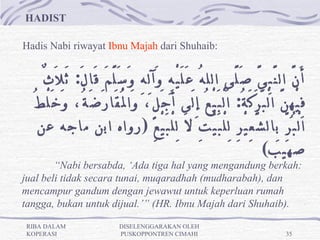 HADIST
Hadis Nabi riwayat Ibnu Majah dari Shuhaib:
أَنَّ النَّبِيَّ صَلَّى اللهُ عَلَيْهِ وَآلِهِ وَسَلَّمَ قَالَ: ثَلَاثٌ
فِيْهِنَّ الْبَرَكَةُ: اَلْبَيْعُ إِلَى أَجَلٍ، وَالْمُقَارَضَةُ، وَخَلْطُ
الْبُرِّ بِالشَّعِيْرِ لِلْبَيْتِ لاَ لِلْبَيْعِ (رواه ابن ماجه عن
صهيب)
“Nabi bersabda, ‘Ada tiga hal yang mengandung berkah:
jual beli tidak secara tunai, muqaradhah (mudharabah), dan
mencampur gandum dengan jewawut untuk keperluan rumah
tangga, bukan untuk dijual.’” (HR. Ibnu Majah dari Shuhaib).
RIBA DALAM
KOPERASI
DISELENGGARAKAN OLEH
PUSKOPPONTREN CIMAHI
35